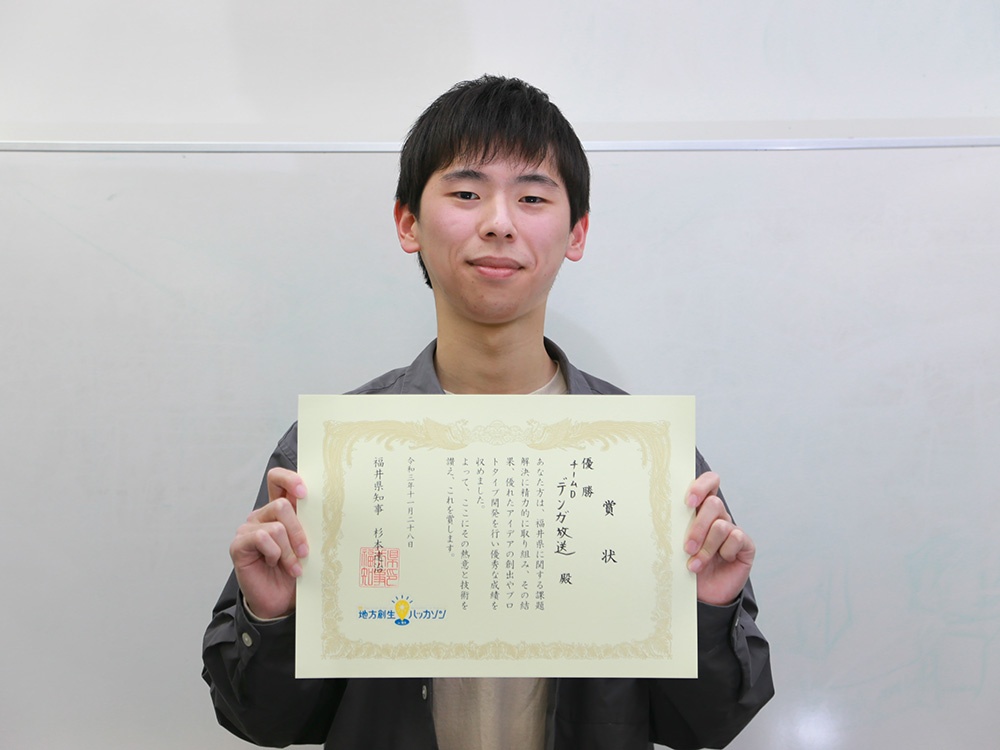 賞状
優勝
チームD デンガ放送 殿
あなた方は、福井県に関する課題
解決に積力的に取り組み、その結
果、優れたアイデアの創出やプロ
トタイプ開発を行い優秀な成績を
収めました。
よって、ここにその熱意と技術を
讃え、これを賞します。
令和三年十一月二十八日
福井県知事 杉本達治
地方創生ハッカソン